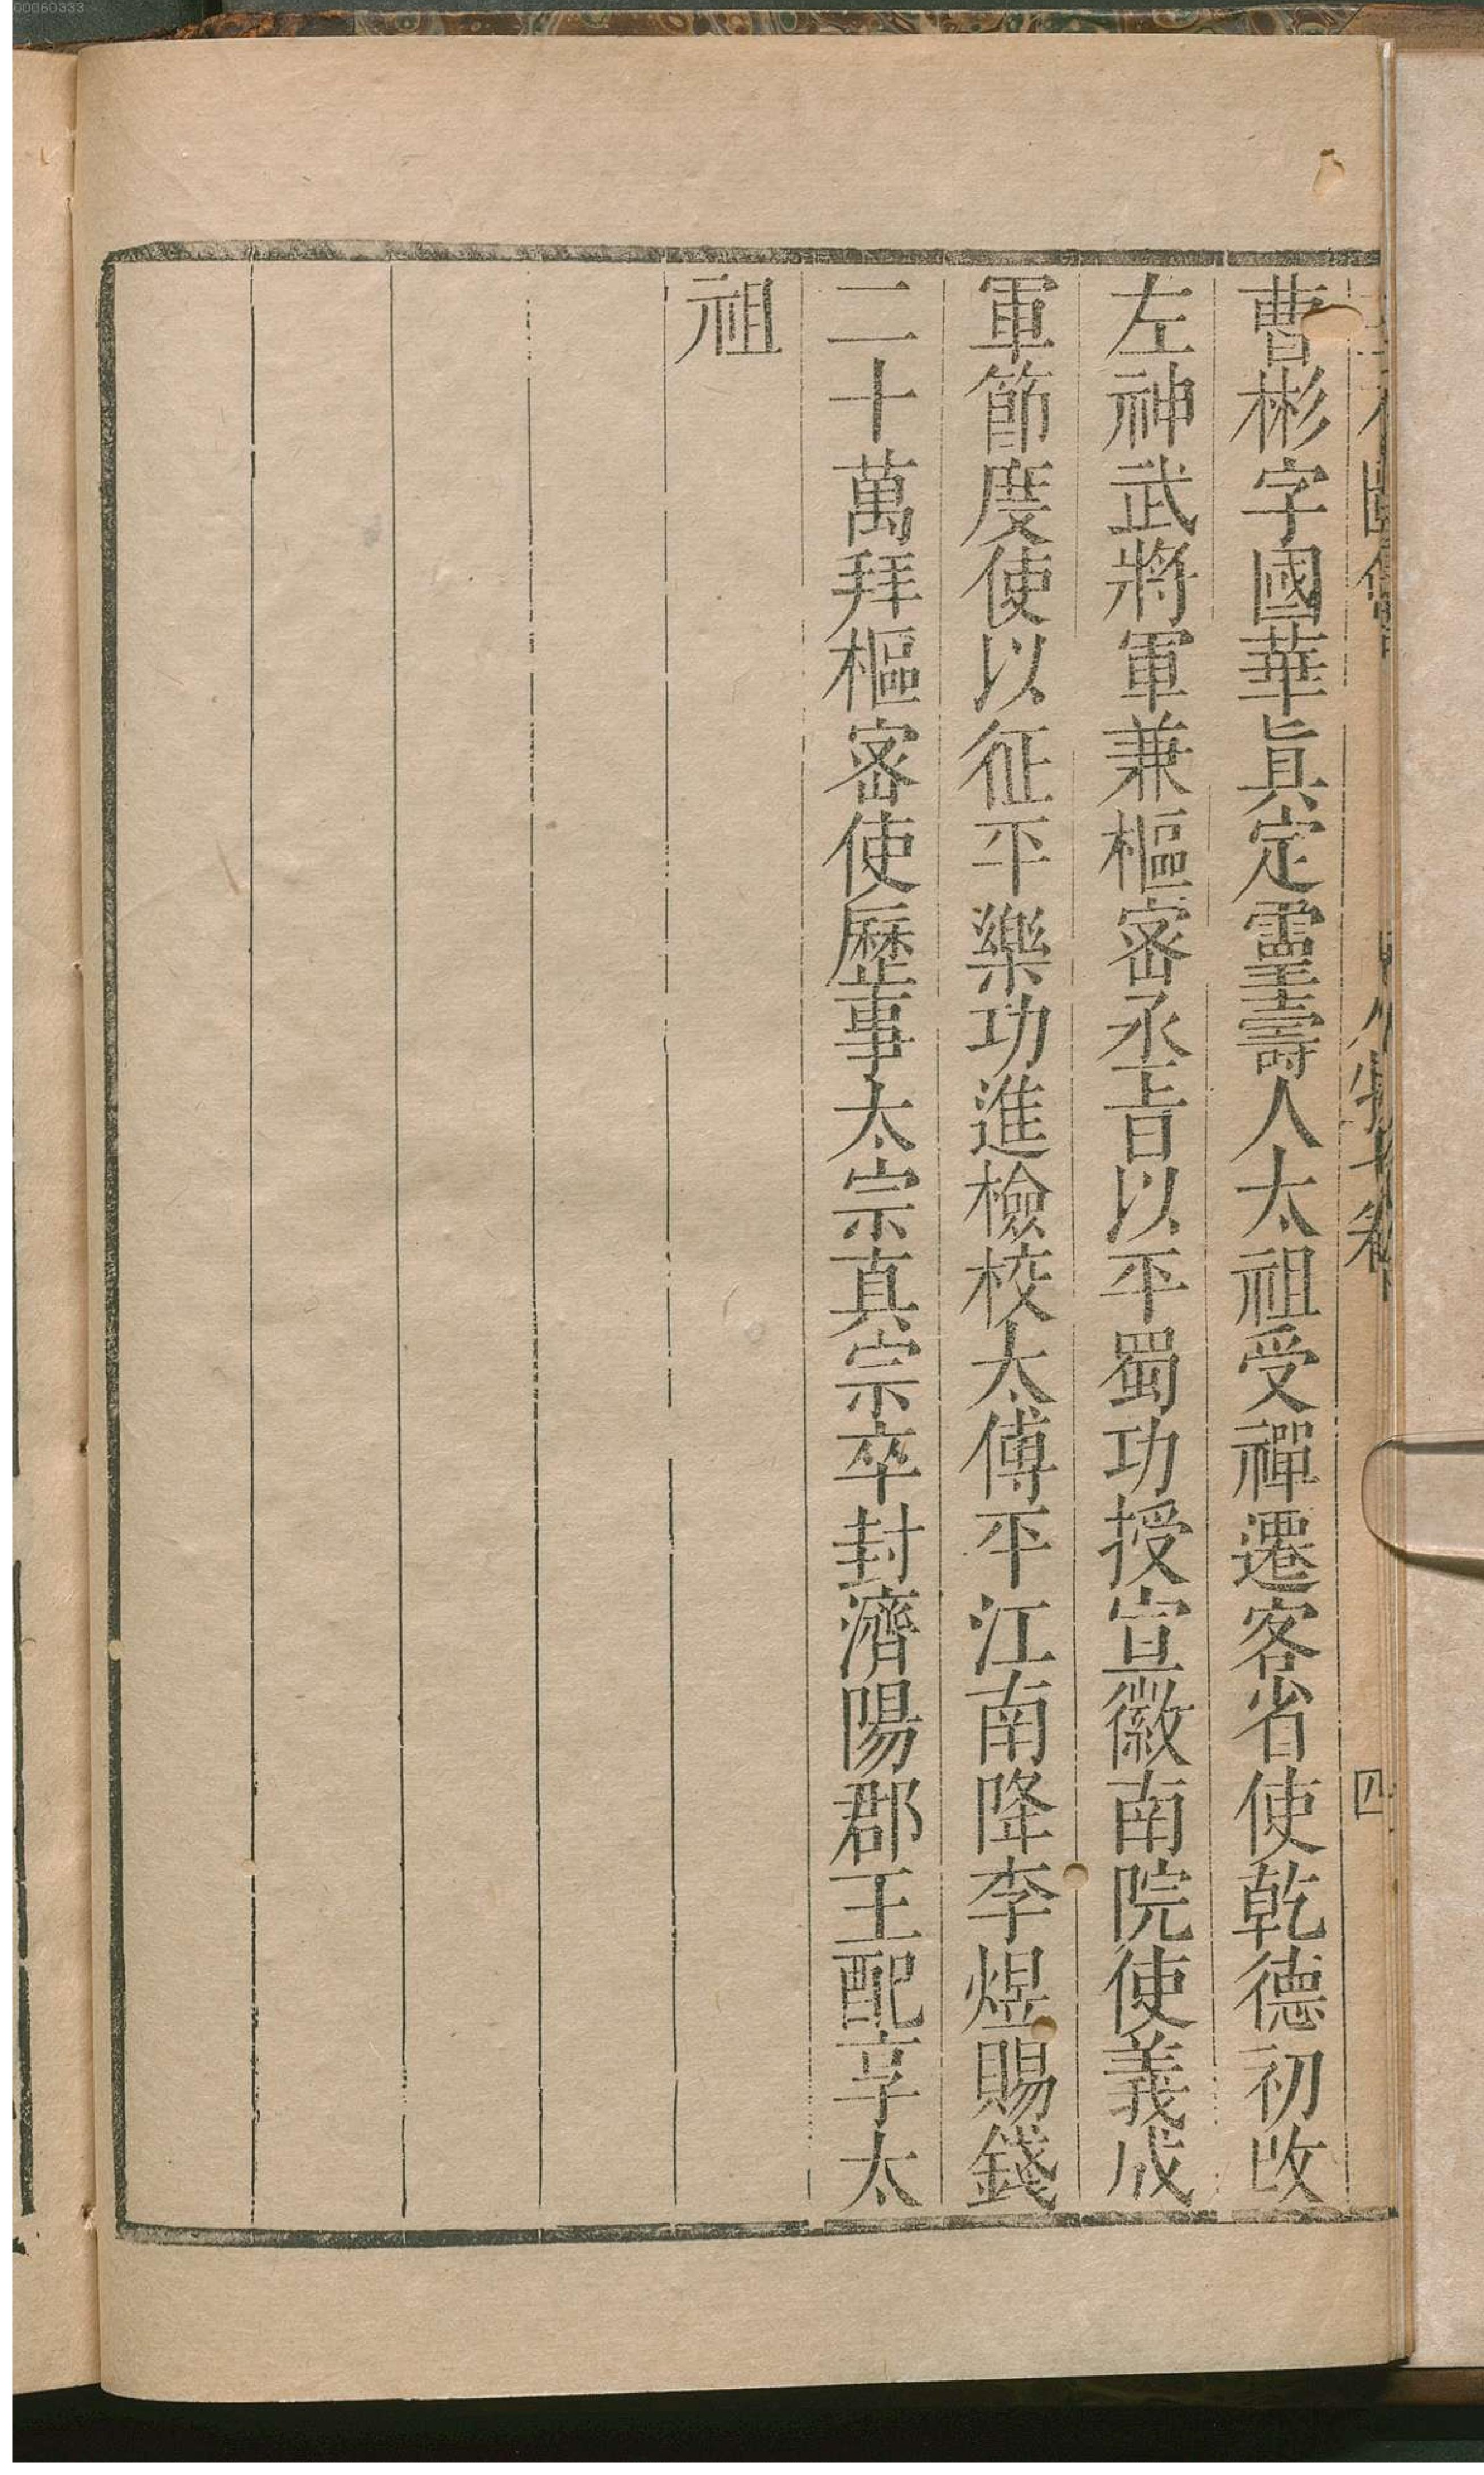 曹彬字國華眞定靈壽人太祖受禪遷客省使乾德初改
左神武將軍兼樞密丞旨以平蜀功授宣徽南院使義成
軍節度使以征平樂功進檢校太傅平江南降李煜賜錢
二十萬拜樞密使歷事太宗真宗卒封濟陽郡王配享太
祖
四
00060333